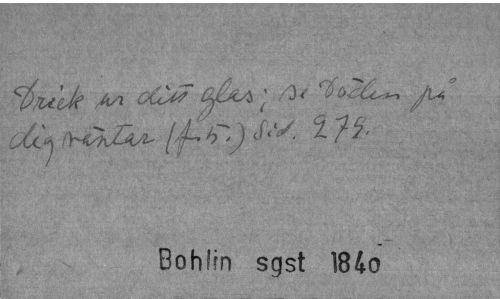 Drick ur ditt glas; se Döden på
dig väntar (f. 5.) Sid. 279.
Bohlin sgst 1840